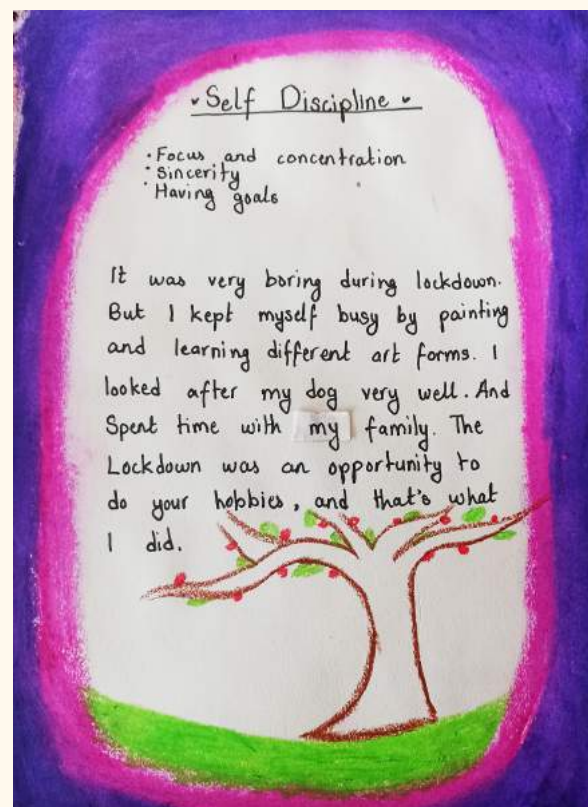 Self Discipline
• Focus and concentration
• Sincerity
• Having goals
It was very boring during lockdown.
But I kept myself busy by painting
and learning different art forms. I
looked after my dog very well. And
Spent time with my family. The
Lockdown was an opportunity to
do your hobbies, and that's what
I did.